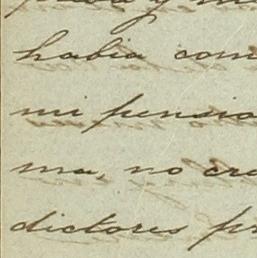 habia com
mi pensio
ma, no cre
dictores pr